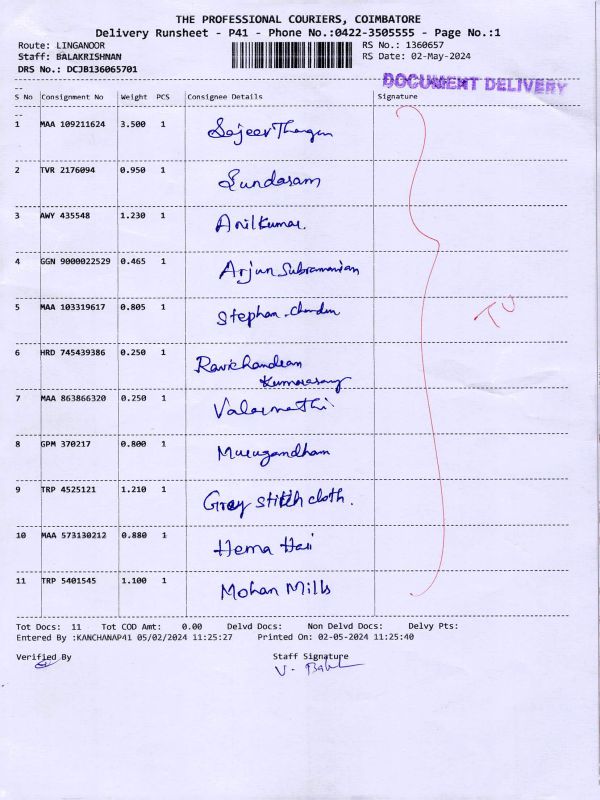 THE PROFESSIONAL COURIERS, COIMBATORE
Delivery Runsheet - P41 - Phone No.:0422-3505555 - Page No.:1
Route: LINGANOOR RS No.: 1360657
Staff: BALAKRISHNAN RS Date: 02-May-2024
DRS No.: DCJB136065701
DOCUMENT DELIVERY
S No Consignment No Weight PCS Consignee Details Signature
1 MAA 109211624 3.500 1 Sajeev
2 TVR 2176094 0.950 1 Sundaram
3 AWY 435548 1.230 1 Anilkumar.
4 GGN 9000022529 0.465 1 Arjun Subramanian
5 MAA 103319617 0.805 1 Stephan
6 HRD 745439386 0.250 1 Ravichandran
Kumarasamy
7 MAA 863866320 0.250 1 Valarmathi
8 GPM 370217 0.800 1 Murugandham
9 TRP 4525121 1.210 1 Grey stitch cloth.
10 MAA 573130212 0.880 1 Hema Hari
11 TRP 5401545 1.100 1 Mohan Mills
Tot Docs: 11 Tot COD Amt: 0.00 Delvd Docs: Non Delvd Docs: Delvy Pts:
Entered By :KANCHANAP41 05/02/2024 11:25:27 Printed On: 02-05-2024 11:25:40
Verified By Staff Signature